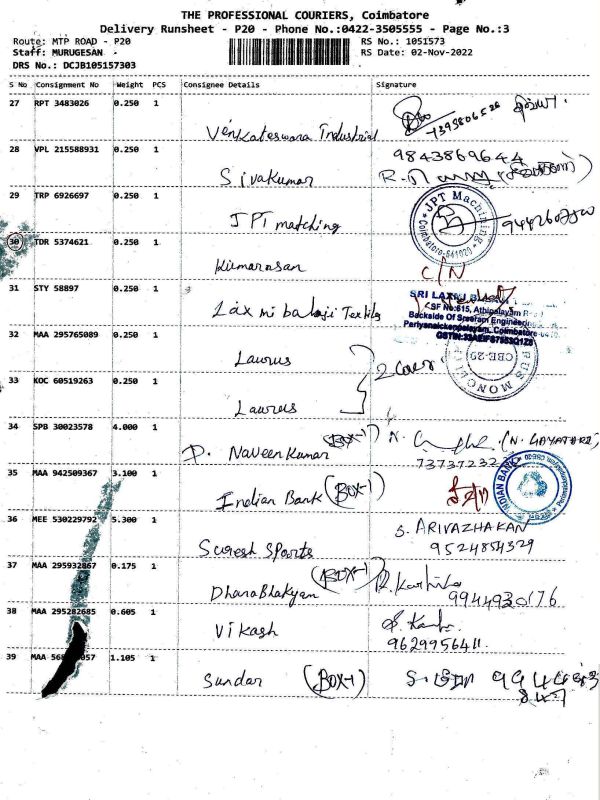 THE PROFESSIONAL COURIERS, Coimbatore
Delivery Runsheet - P20 - Phone No.:0422-3505555 - Page No.:3
Route: MTP ROAD - P20 RS No.: 1051573
Staff: MURUGESAN RS Date: 02-Nov-2022
DRS No.: DCJB105157303
S No Consignment No Weight PCS Consignee Details Signature
27 RPT 3483026 0.250 1
Venkateswara Industrial
28 VPL 215588931 0.250 1 9843869644
Sivakumar
29 TRP 6926697 0.250 1
JPT matching JPT Machining Coimbatore-641020
30 TDR 5374621 0.250 1
Kumarasan C/N
31 STY 58897 0.250 1
Lax mi balaji Textiles
SF No:615, Athipalayam
Backside Of Sreeram Engineering
Periyanaickenpalayam, Coimbatore
32 MAA 295765089 0.250 1
Laurus 2 Cover
CBE-29
33 KOC 60519263 0.250 1
Laurus
34 SPB 30023578 4.000 1
D. Naveen Kumar (BOX-1) N. (N. GAYATHRI)
73737232
35 MAA 942509367 3.100 1
Indian Bank (BOX-1) INDIAN BANK
36 MEE 530229792 5.300 1 S. ARIVAZHAKAN
Suresh Sports 9524854329
37 MAA 295932867 0.175 1
DhanaBhakyam (BOX-1) R. Karthika
9944930176
38 MAA 295282685 0.605 1
Vikash 9629956411
39 MAA 1.105 1
Sundar (BOX-1)
847